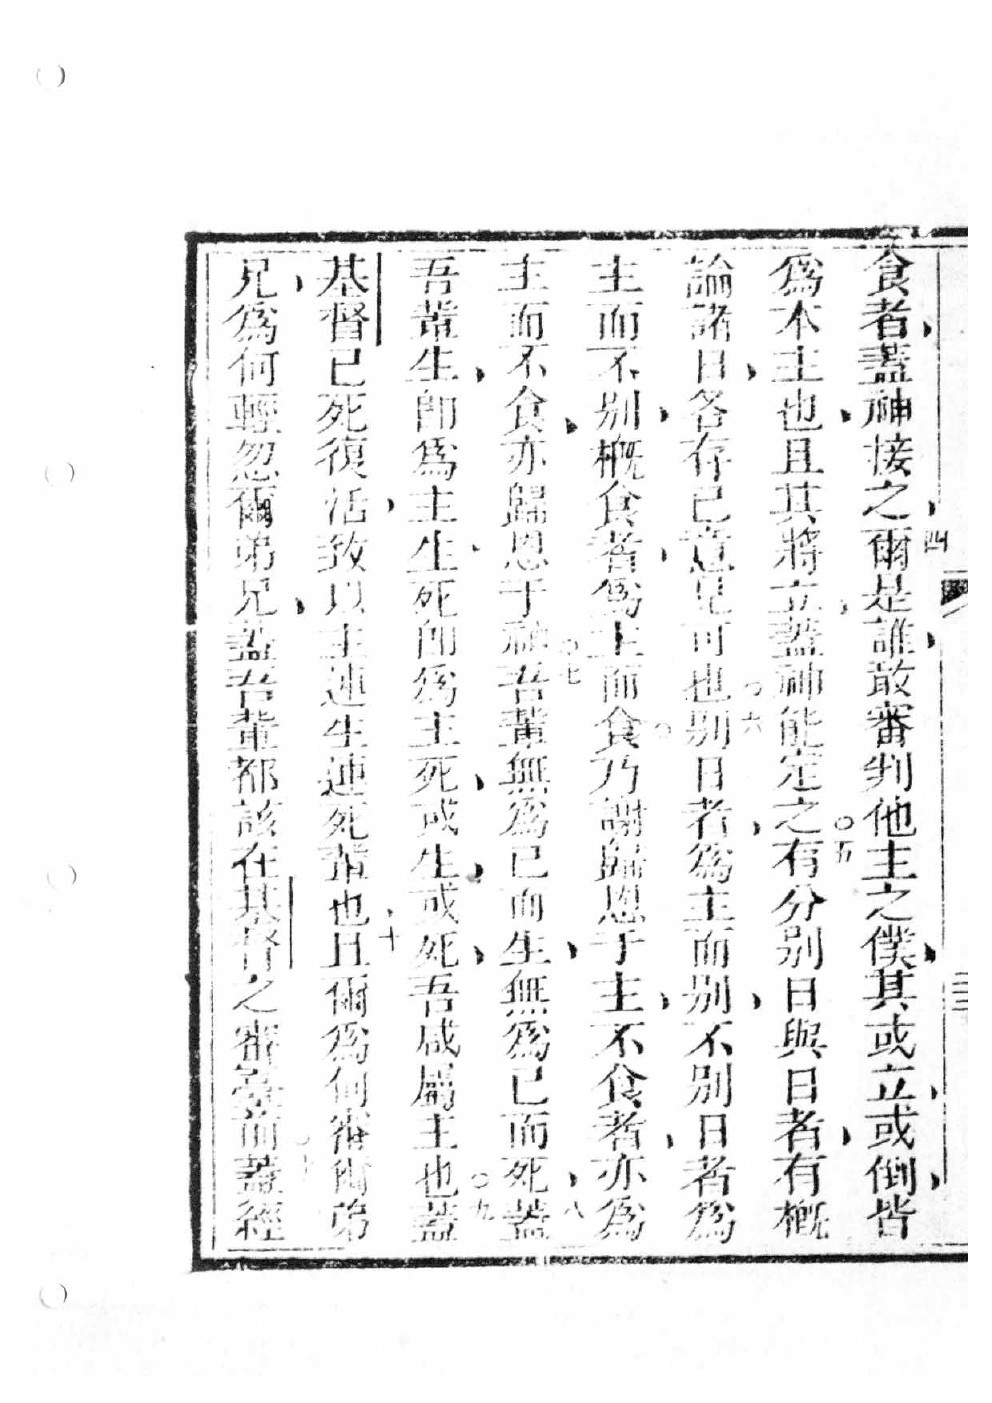 食者蓋神接之四爾是誰敢審判他主之僕其或立或倒皆
為本主也且其將立蓋神能定之〇五有分別日與日者有概
論諸日各存已意見可也〇六別日者為主而別不別日者為
主而不別概食者為主而食乃謝歸恩于主不食者亦為
主而不食亦歸恩于神〇七吾輩無為已而生無為已而死八蓋
吾輩生即為主生死即為主死或生或死吾咸屬主也〇九蓋
基督已死復活致以主連生連死輩也十且爾為何審爾弟
兄為何輕忽爾弟兄蓋吾輩都該在基督之審臺前蓋經